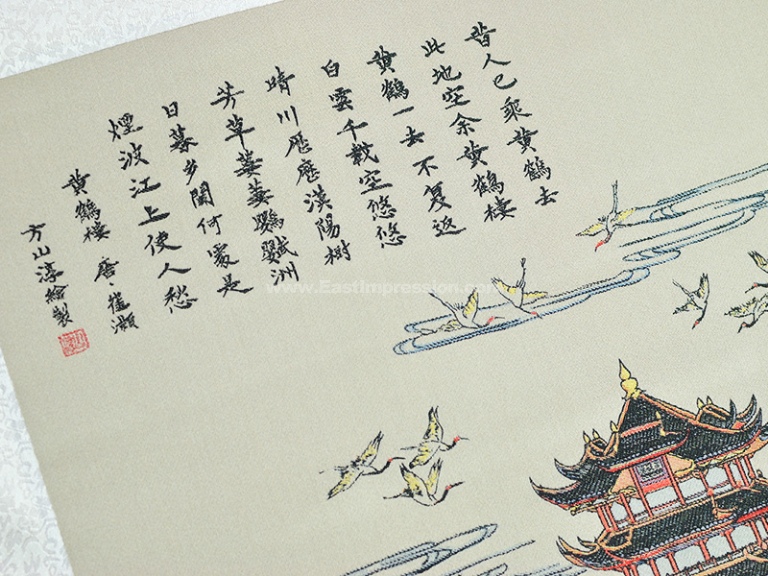 昔人已乘黄鶴去
此地空余黄鶴樓
黄鶴一去不复返
白雲千載空悠悠
晴川歷歷漢陽樹
芳草萋萋鸚鵡洲
日暮乡關何處是
煙波江上使人愁
黄鶴樓 唐、崔灝
方山淳繪製
www.EastImpression.com